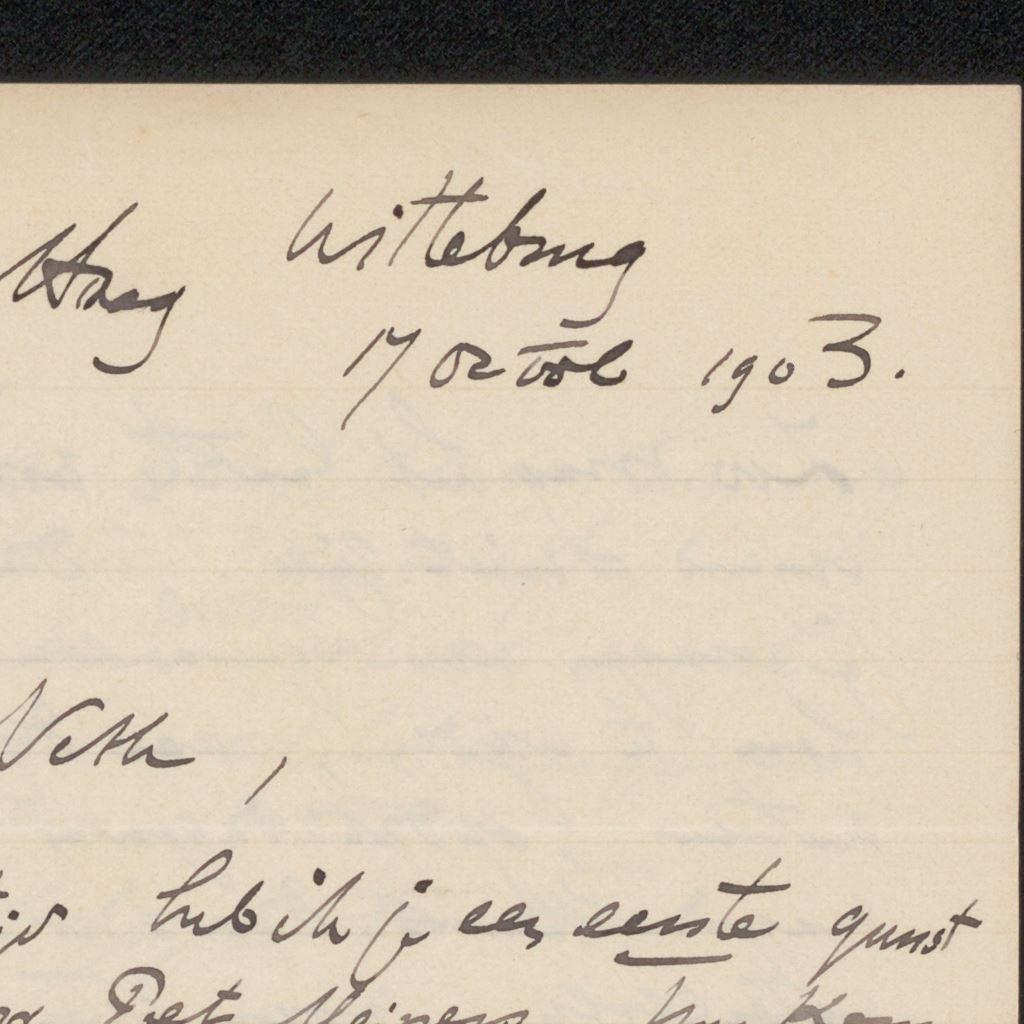 Haag Witteburg
17 Octob 1903.
Veth,
heb ik je een eerste gunst
Piet